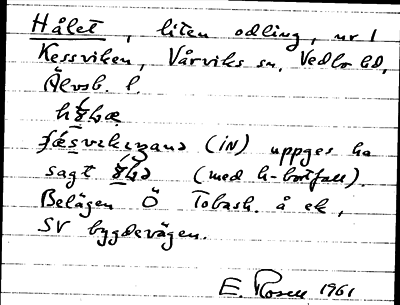 Hålet, liten odling, nr 1
Kessviken, Vårviks sn. Vedbo hd,
Älvsb. l.
(iN) uppges ha
sagt (med h-bortfall).
Belägen Ö Tobash. å ek,
SV bygdevägen.
E. Rosell 1961